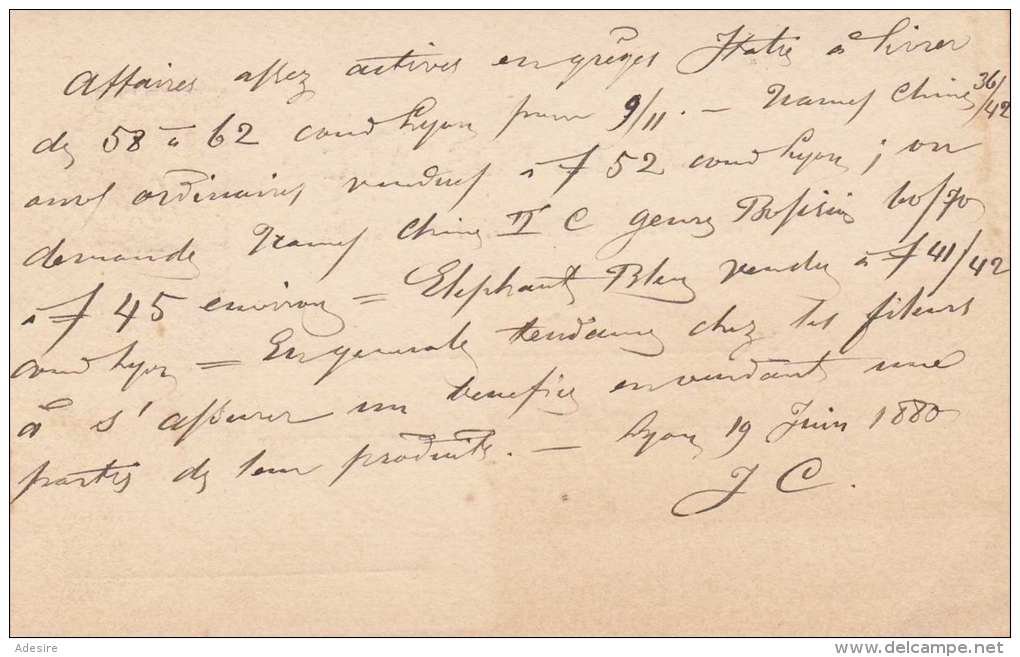 Affaires assez actives en grèges Italie à livrer
de 58 à 62 cond Lyon pour 9/11. — Trames Chine 36/42
ordinaires vendues à f 52 cond Lyon ; on
demande Trames Chine II C genre 60/70
à f 45 environ = Elephant Bleu vendu à f 41/42
cond Lyon = En generale tendance chez les fileurs
à s'assurer un benefice en vendant une
partie de leur produits. — Lyon 19 Juin 1880
J C.
Adesire
www.delcampe.net